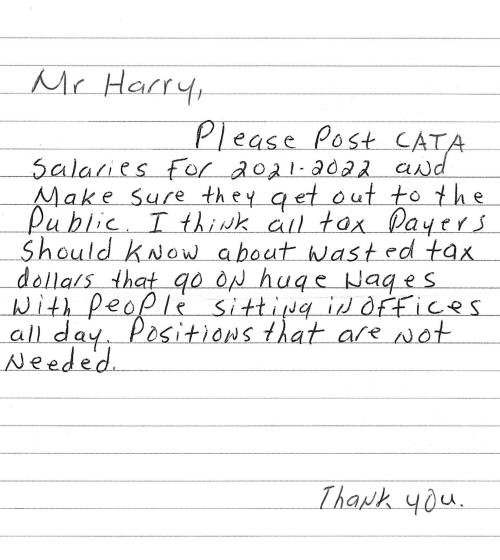 Mr Harry,
Please Post CATA
Salaries For 2021-2022 and
Make Sure they get out to the
Public. I think all tax Payers
Should Know about wasted tax
dollars that go on huge Wages
With People sitting in offices
all day. Positions that are Not
Needed.
Thank you.